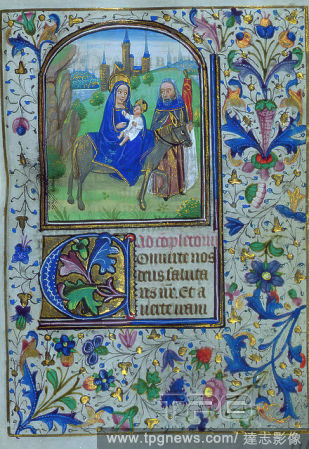 Ad cõpletoriũ
Onuirte nos
deus saluta
ris nr̃. Et a
uerte iram
www.tpgnews.com/ 達志影像